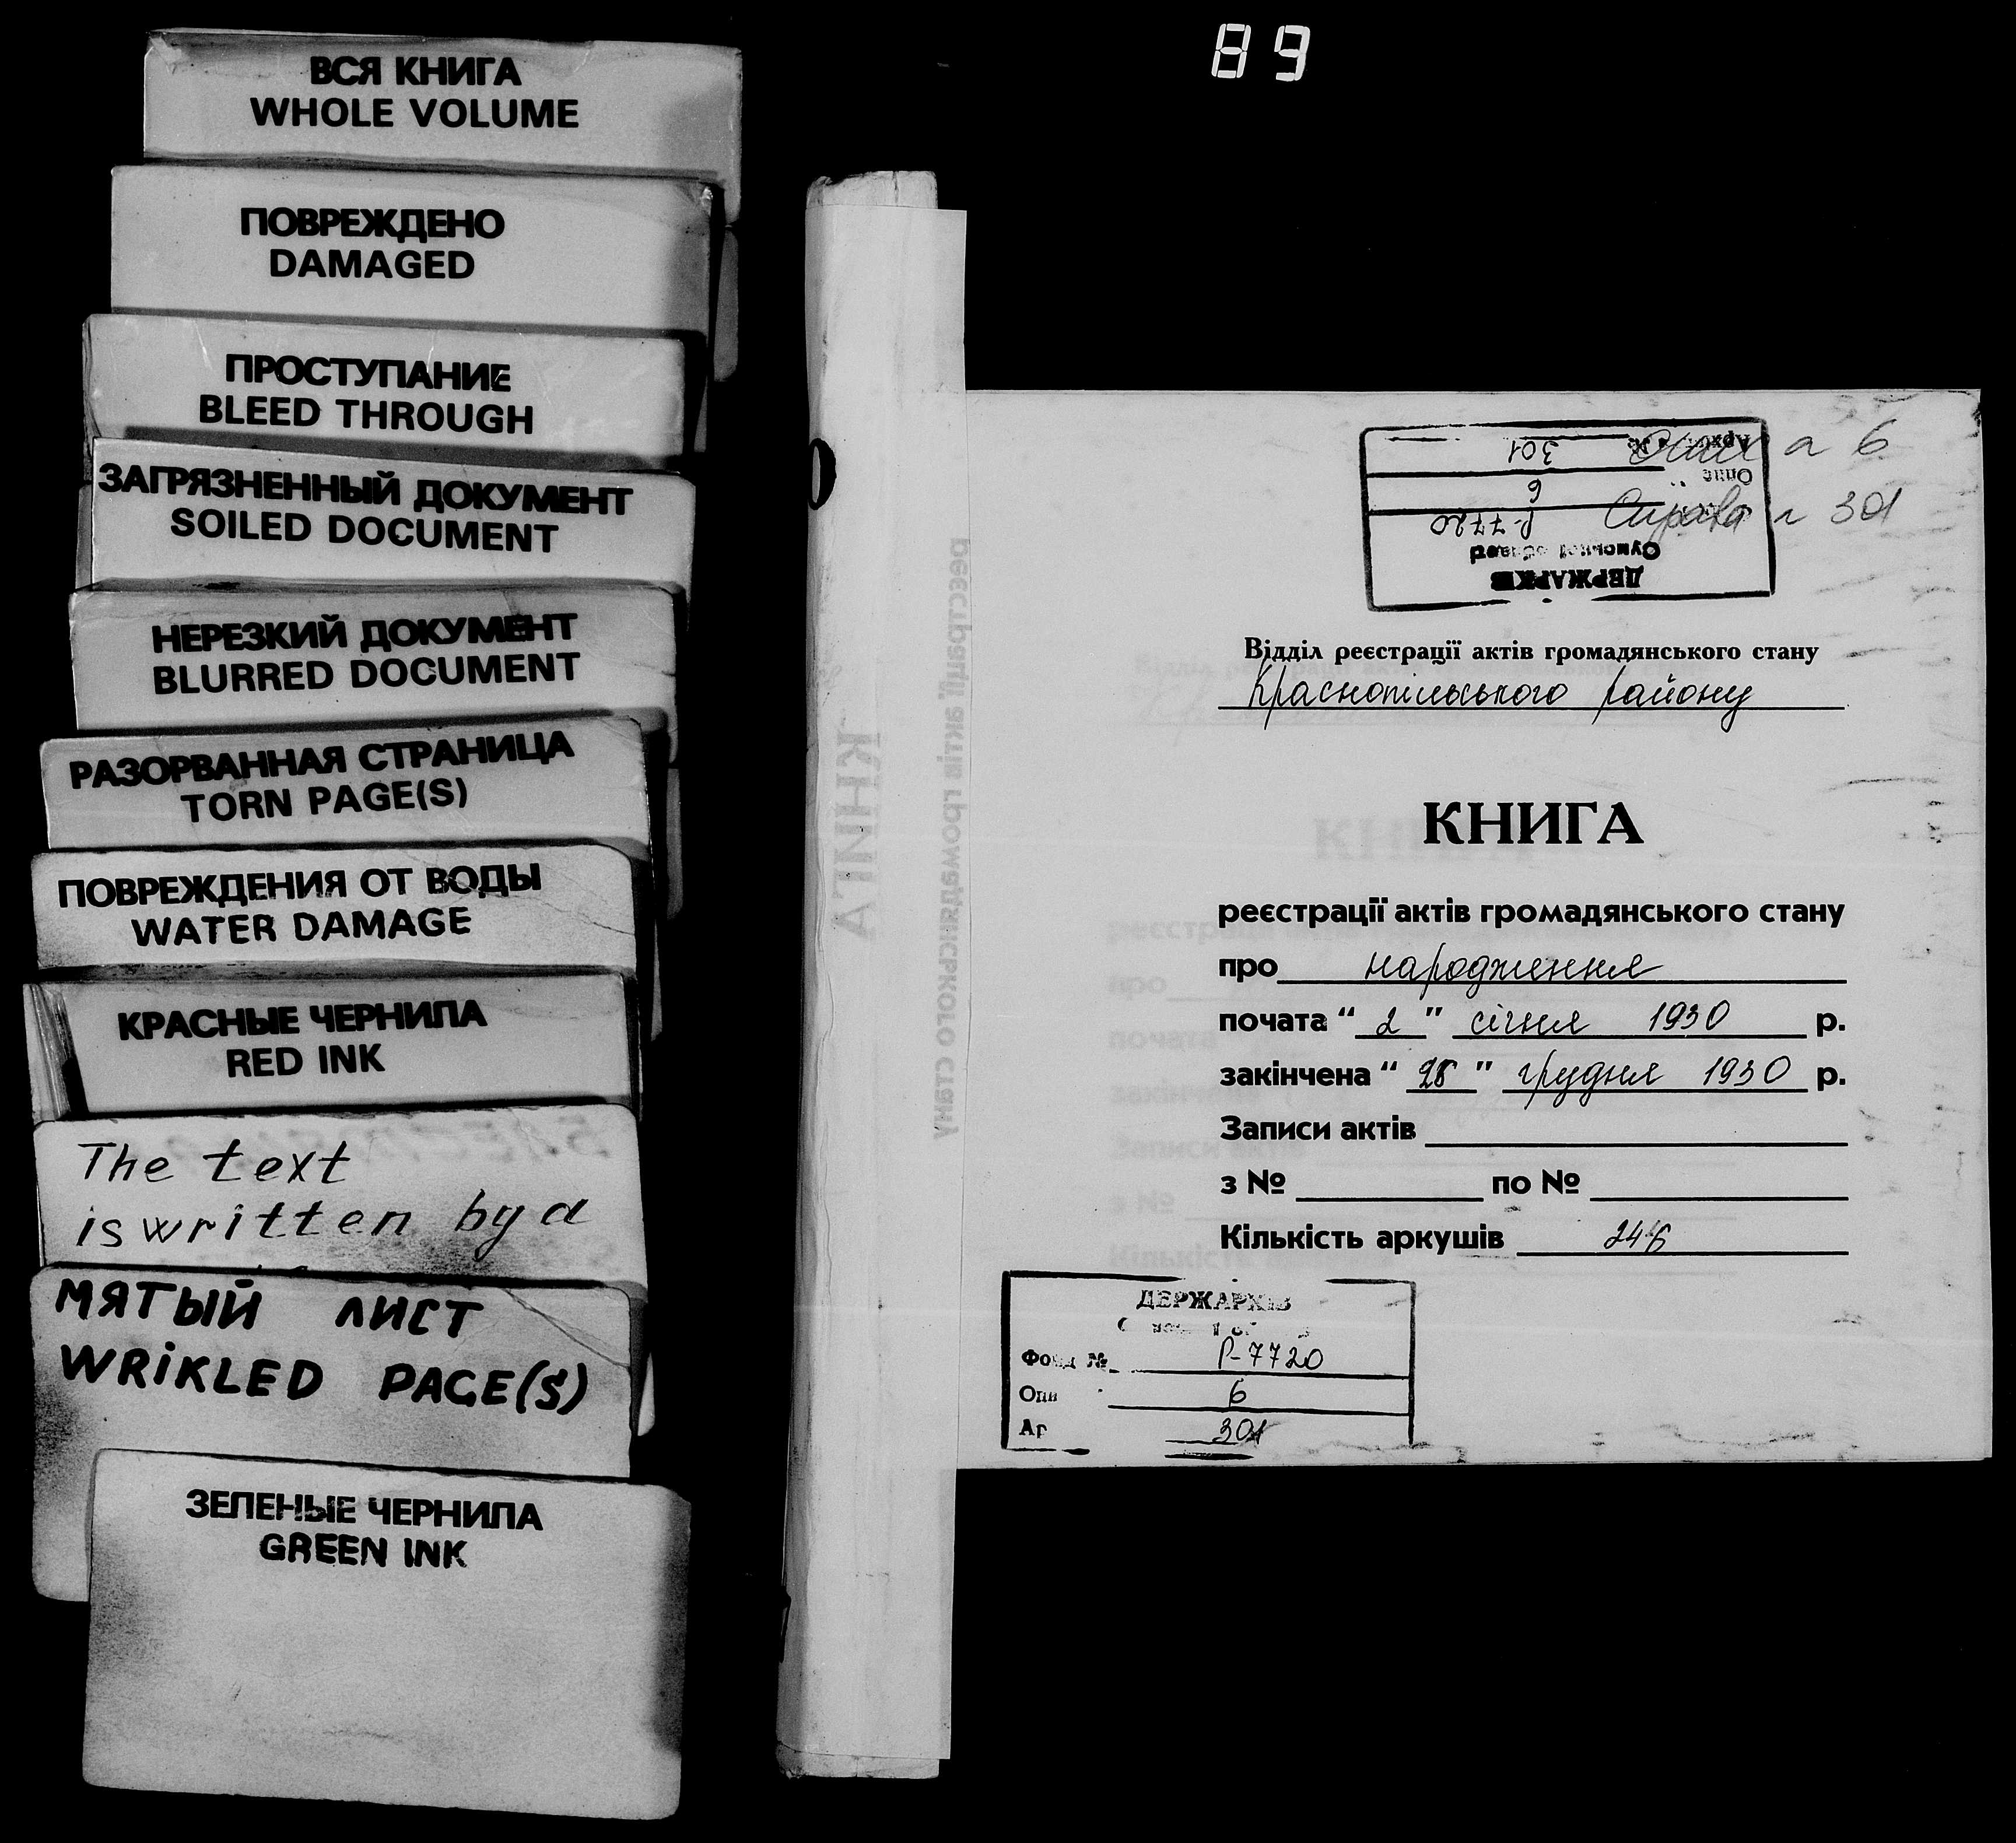 89
ВСЯ КНИГА
WHOLE VOLUME
ПОВРЕЖДЕНО
DAMAGED
ПРОСТУПАНИЕ
BLEED THROUGH
ЗАГРЯЗНЕННЫЙ ДОКУМЕНТ
SOILED DOCUMENT
НЕРЕЗКИЙ ДОКУМЕНТ
BLURRED DOCUMENT
РАЗОРВАННАЯ СТРАНИЦА
TORN PAGE(S)
ПОВРЕЖДЕНИЯ ОТ ВОДЫ
WATER DAMAGE
КРАСНЫЕ ЧЕРНИЛА
RED INK
The text
is written by a
МЯТЫЙ ЛИСТ
WRIKLED PAGE(S)
ЗЕЛЕНЫЕ ЧЕРНИЛА
GREEN INK
КНИГА
реєстрації актів громадянського стану
6
Справа 301
ДЕРЖАРХІВ
Сумської області
Р-7720
Опис 6
301
Відділ реєстрації актів громадянського стану
Краснопільського району
КНИГА
реєстрації актів громадянського стану
про народження
почата “ 2 ” січня 1930 р.
закінчена “ 28 ” грудня 1930 р.
Записи актів
з № по №
Кількість аркушів 246
ДЕРЖАРХІВ
Фонд № Р-7720
6
301